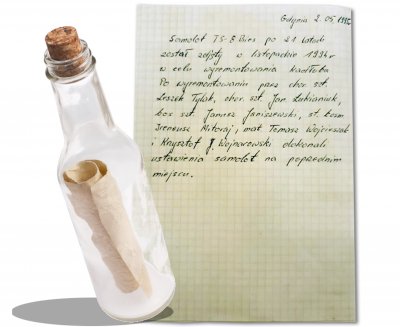 Gdynia 2.05.1995
Samolot TS-8 Bies po 21 latach
został zdjęty w listopadzie 1994r
w celu wyremontowania kadłuba
Po wyremontowaniu przez chor. szt.
Leszek Tylak, chor. szt. Jan Łukianiuk,
bos szt. Janusz Janiszewski, st. bosm
Ireneusz Nitoraj, mat Tomasz Wojcieszak
i Krzysztof J. Wojnarowski dokonali
ustawienia samolot na poprzednim
miejscu.